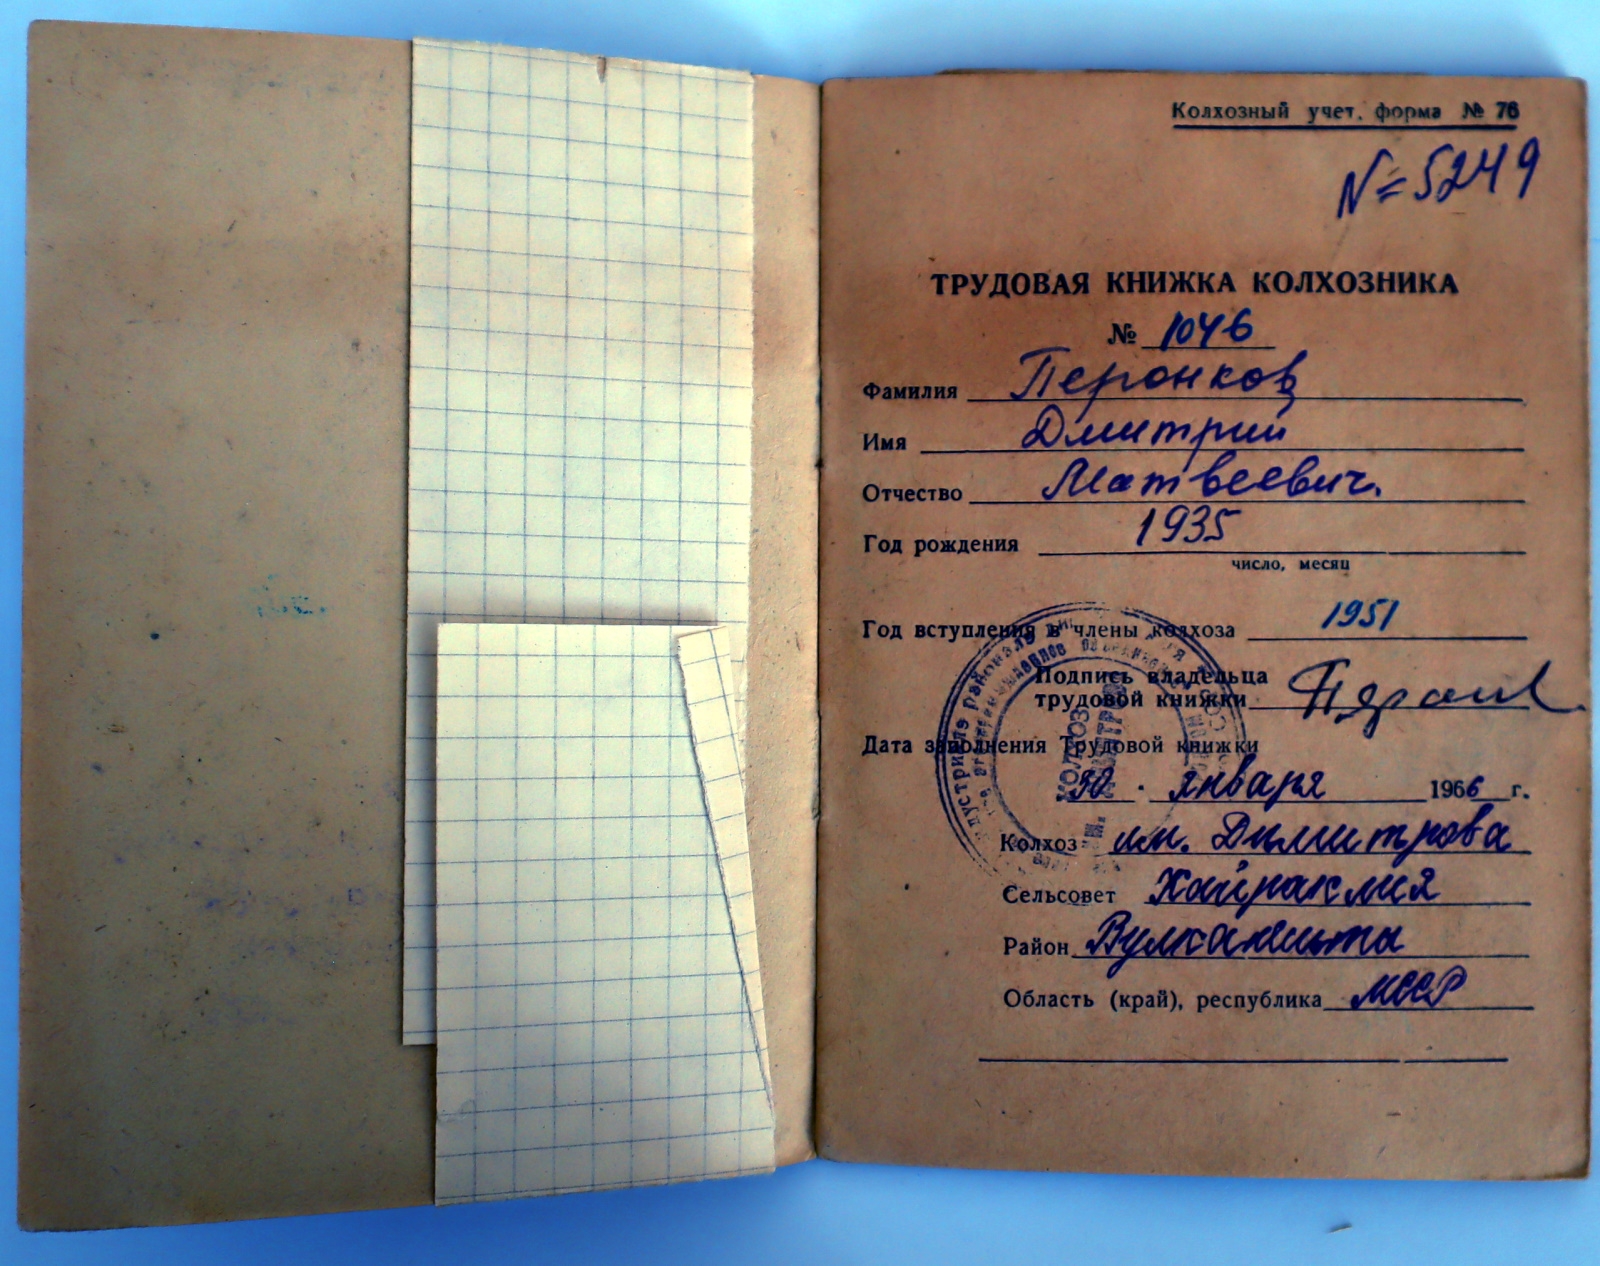 Колхозный учет, форма № 76
N=5249
ТРУДОВАЯ КНИЖКА КОЛХОЗНИКА
№ 1046
Фамилия Перонков
Имя Дмитрий
Отчество Матвеевич.
Год рождения 1935
число, месяц
Год вступления в члены колхоза 1951
Подпись владельца
трудовой книжки
Дата заполнения Трудовой книжки
30 января 1966 г.
Колхоз им. Димитрова
Сельсовет Хайраклия
Район Вулканешты
Область (край), республика МССР